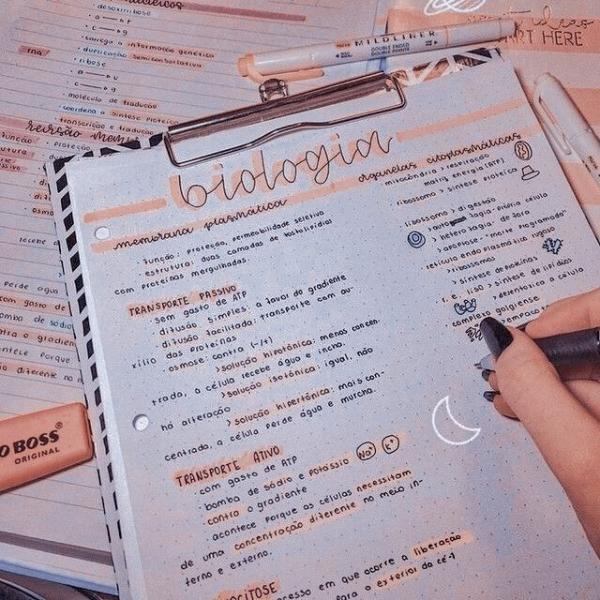 desoxirribose
carrega a informação genética
duplicação semiconservativa
RNA
ribose
molécula de tradução
coordena a síntese proteica
transcrição e tradução
MILDLINER
DOUBLE ENDED
START HERE
biologia
membrana plasmática
· função: proteção, permeabilidade seletiva
· estrutura: duas camadas de
com proteínas mergulhadas.
TRANSPORTE PASSIVO
· sem gasto de ATP
· difusão simples: a favor do gradiente
· difusão facilitada: transporte com au-
xílio das proteínas
· osmose: contra (-/+)
> solução hipotônica: menos concen-
trada, a célula recebe água e incha.
> solução isotônica: igual, não
há alteração
> solução hipertônica: mais con-
centrada, a célula perde água e murcha.
TRANSPORTE ATIVO
· com gasto de ATP
· bomba de sódio e potássio Na+ K+
· contra o gradiente
· acontece porque as células necessitam
de uma concentração diferente no meio in-
terno e externo.
CITOSE
processo em que ocorre a liberação
para o exterior da cé-
organelas citoplasmáticas
mitocôndria > respiração
energia (ATP)
ribossomo > síntese proteica
> digestão
própria célula
> apoptose - "morte programada"
retículo endoplasmático rugoso
> ribossomos
> síntese de proteínas
> síntese de lipídios
a célula
complexo golgiense
BOSS®
ORIGINAL